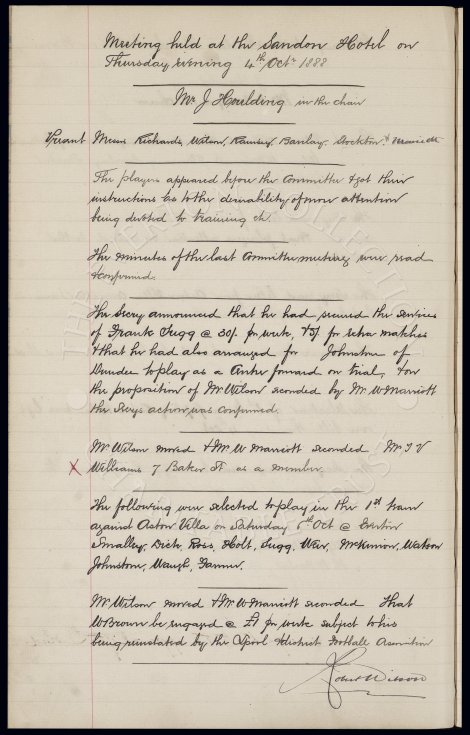 Meeting held at the Sandon Hotel on
Thursday evening 4th Octr 1888
Mr J Houlding in the chair
Present Messrs Richards, Wilson, Ramsey, Barclay, Stockton, & Marriott
The players appeared before the Committee & got their
instructions as to the desirability of more attention
being devoted to training etc.
The minutes of the last Committee meeting were read
& confirmed.
The Secry announced that he had secured the services
of Frank Sugg @ 30/- per week, & 5/- for extra matches
& that he had also arranged for Johnstone of
Dundee to play as a Center forward on trial, & on
the proposition of Mr Wilson seconded by Mr W Marriott
the Secys action was confirmed.
Mr Wilson moved & Mr W Marriott seconded Mr
X Williams 7 Baker St as a member
The following were selected to play in the 1st team
against Aston Villa on Saturday 6th Oct @ Everton
Smalley, Dick, Ross, Holt, Sugg, Weir, McKinnon, Watson
Johnstone, Waugh, Farmer.
Mr Wilson moved & Mr W Marriott seconded That
W Brown be engaged @ £1 per week subject to his
being reinstated by the Lpool & district Football Association
Robert Wilson